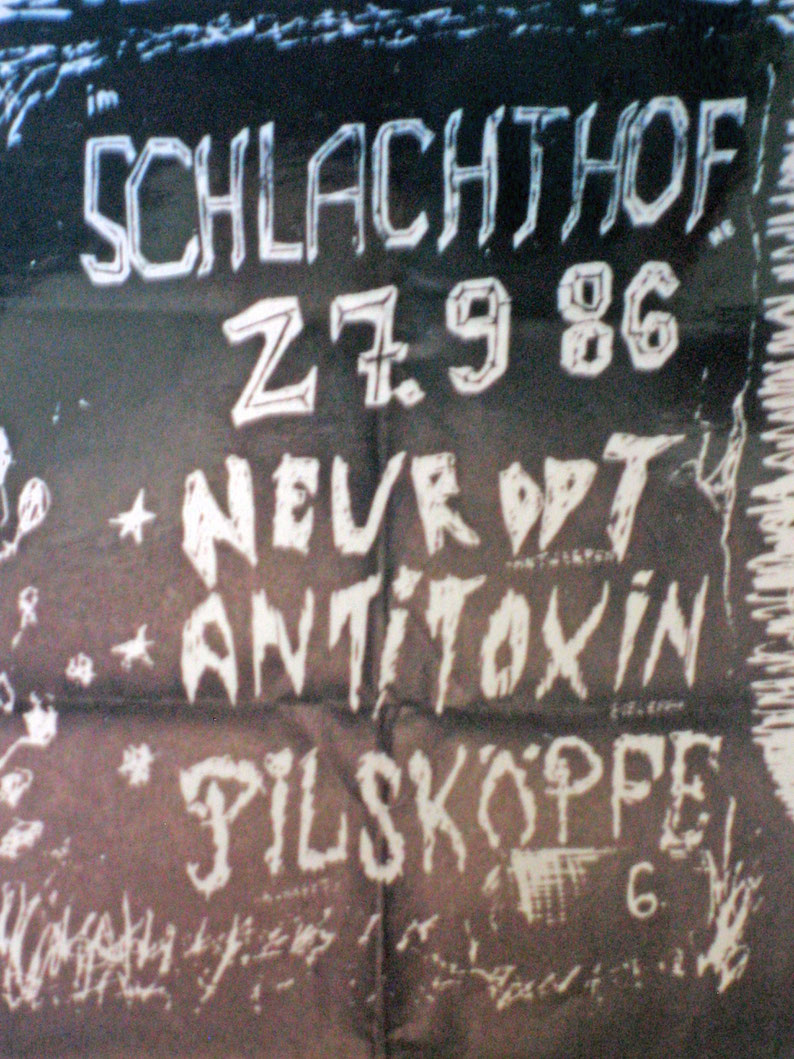 im
SCHLACHTHOF
27.9 86
* NEUROOT
ANTWERPEN
* ANTiTOXiN
* PiLSKÖPFE
6.